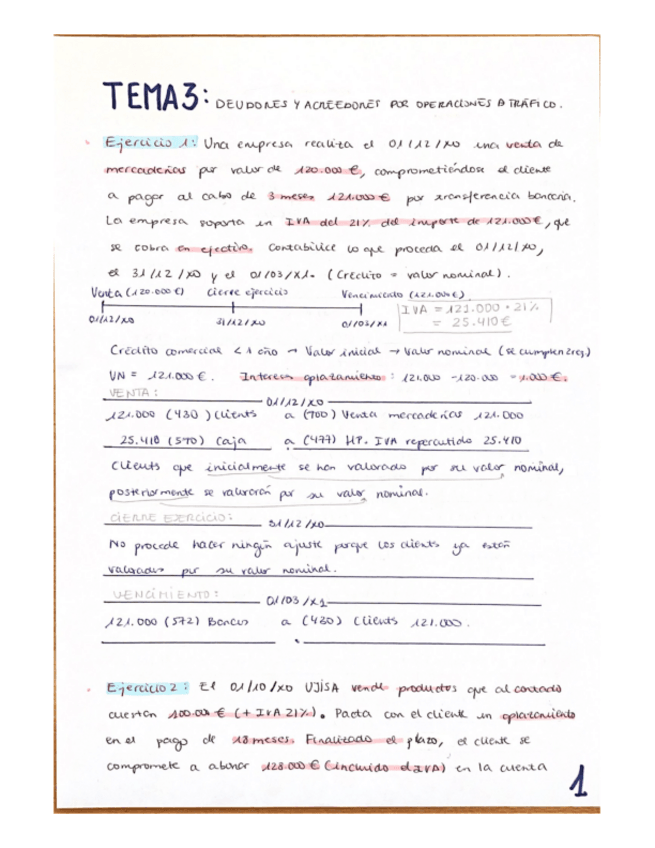 TEMA 3: DEUDORES Y ACREEDORES POR OPERACIONES D TRÁFICO.
Ejercicio 1: Una empresa realiza el 01/12/X0 una venta de
mercaderías por valor de 120.000 €, comprometiéndose el cliente
a pagar al cabo de 3 meses 121.000 € por transferencia bancaria.
La empresa soporta un IVA del 21% del importe de 121.000 €, que
se cobra en efectivo. Contabilice lo que proceda el 01/12/X0,
el 31/12/X0 y el 01/03/X1. (Crédito = valor nominal).
Venta (120.000 €) Cierre ejercicio Vencimiento (121.000 €)
01/12/X0 31/12/X0 01/03/X1
IVA = 121.000 · 21%
= 25.410 €
Crédito comercial < 1 año → Valor inicial → Valor nominal (se cumplen 2 req)
VN = 121.000 €. Intereses aplazamiento: 121.000 - 120.000 = 1.000 €.
VENTA:
01/12/X0
121.000 (430) Clients a (700) Venta mercaderías 121.000
25.410 (570) Caja a (477) HP. IVA repercutido 25.410
Clients que inicialmente se han valorado por su valor nominal,
posteriormente se valorarán por su valor nominal.
CIERRE EJERCICIO:
31/12/X0
No procede hacer ningún ajuste porque los clients ya están
valorados por su valor nominal.
VENCIMIENTO:
01/03/X1
121.000 (572) Bancos a (430) Clients 121.000.
Ejercicio 2: El 01/10/X0 UJISA vende productos que al contado
cuestan 100.000 € (+ IVA 21%). Pacta con el cliente un aplazamiento
en el pago de 18 meses. Finalizado el plazo, el cliente se
compromete a abonar 128.000 € (incluido el IVA) en la cuenta
1